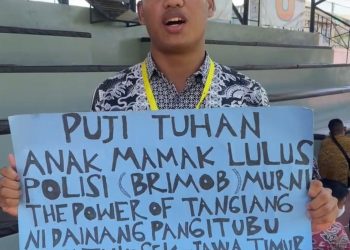 PUJI TUHAN
ANAK MAMAK LULUS
POLISI (BRIMOB) MURNI
THE POWER OF TANGIANG
NI DAINANG PANGITUBU
JAWA TIMUR